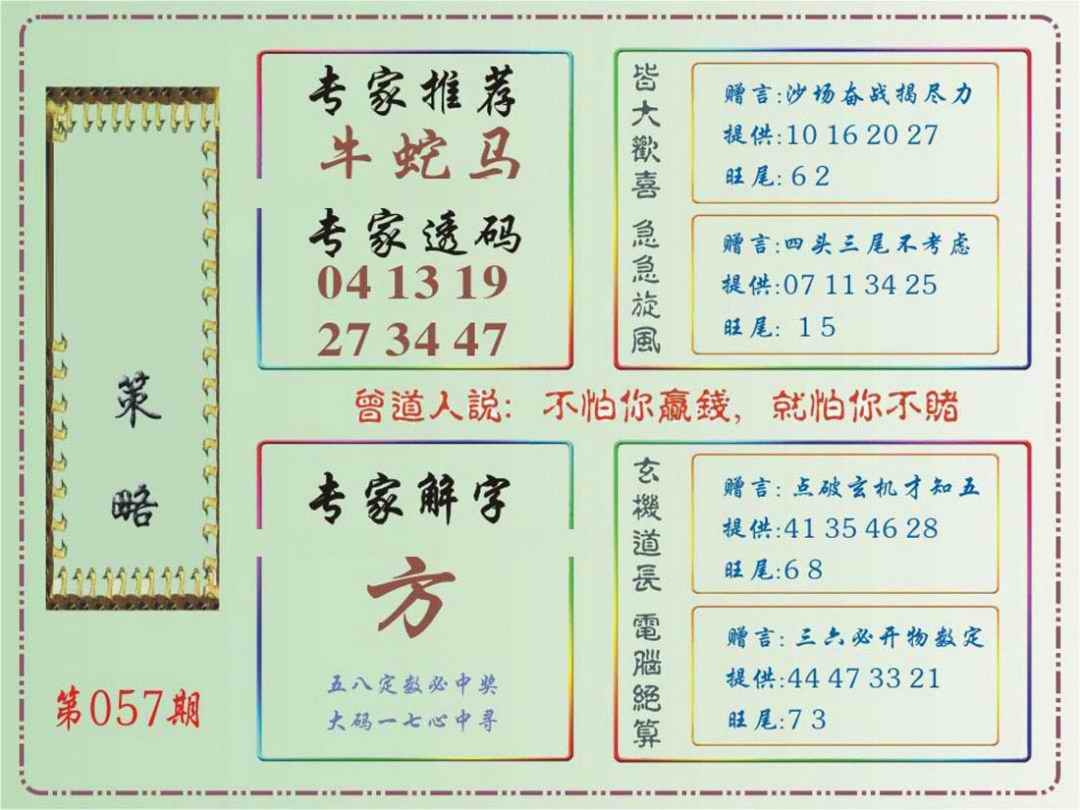 策略
第057期
专家推荐
牛 蛇 马
专家透码
04 13 19
27 34 47
皆大歡喜
赠言:沙场奋战揭尽力
提供:10 16 20 27
旺尾: 6 2
急急旋風
赠言:四头三尾不考虑
提供:07 11 34 25
旺尾: 1 5
曾道人説: 不怕你贏錢, 就怕你不賭
专家解字
方
五八定数必中奖
大码一七心中寻
玄機道長
赠言: 点破玄机才知五
提供:41 35 46 28
旺尾:6 8
電腦絕算
赠言: 三六必开物数定
提供:44 47 33 21
旺尾:7 3